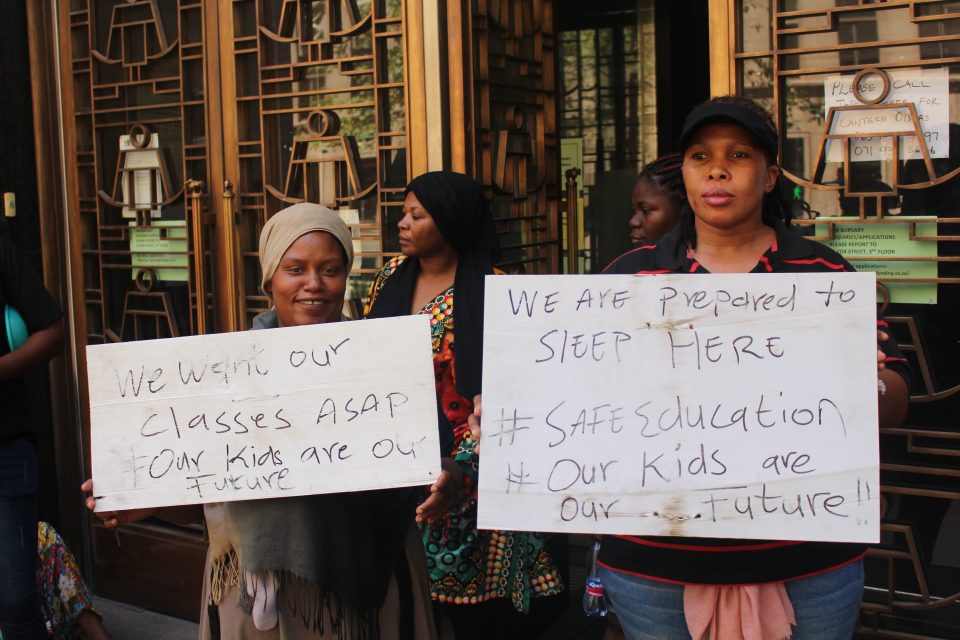 We want our
classes ASAP
#Our Kids are our
Future
We Are prepared to
SlEEP HERE
#SAFE Education
#Our Kids are
Our Future!!
PLEASE CALL
FOR
CANTEEN
071
BURSARY
PLEASE REPORT TO
FOX STREET, 3RD FLOOR